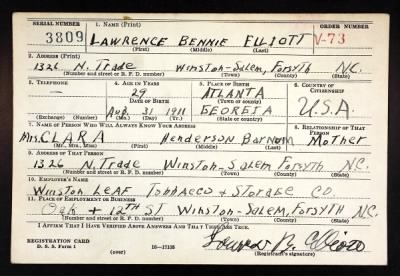 SERIAL NUMBER 1. NAME (Print) ORDER NUMBER
3809 LAWRENCE BENNIE ELLIOTT V-73
(First) (Middle) (Last)
2. ADDRESS (Print)
1326 N. Trade Winston-Salem, Forsyth N.C.
(Number and street or R. F. D. number) (Town) (County) (State)
3. TELEPHONE 4. AGE IN YEARS 5. PLACE OF BIRTH 6. COUNTRY OF CITIZENSHIP
— 29 ATLANTA
DATE OF BIRTH (Town or county)
Aug 31 1911 GEORGIA U.S.A.
(Exchange) (Number) (Mo.) (Day) (Yr.) (State or country)
7. NAME OF PERSON WHO WILL ALWAYS KNOW YOUR ADDRESS 8. RELATIONSHIP OF THAT PERSON
Mrs. CLARA Henderson Mother
(Mr., Mrs., Miss) (First) (Middle) (Last)
9. ADDRESS OF THAT PERSON
1326 N. Trade Winston-Salem Forsyth N.C.
(Number and street or R. F. D. number) (Town) (County) (State)
10. EMPLOYER'S NAME
Winston LEAF TOBACCO & STORAGE CO.
11. PLACE OF EMPLOYMENT OR BUSINESS
Oak + 12TH ST Winston-Salem, FORSYTH N.C.
(Number and street or R. F. D. number) (Town) (County) (State)
I AFFIRM THAT I HAVE VERIFIED ABOVE ANSWERS AND THAT THEY ARE TRUE.
REGISTRATION CARD
D. S. S. Form 1 (over) 16—17105 (Registrant's signature)